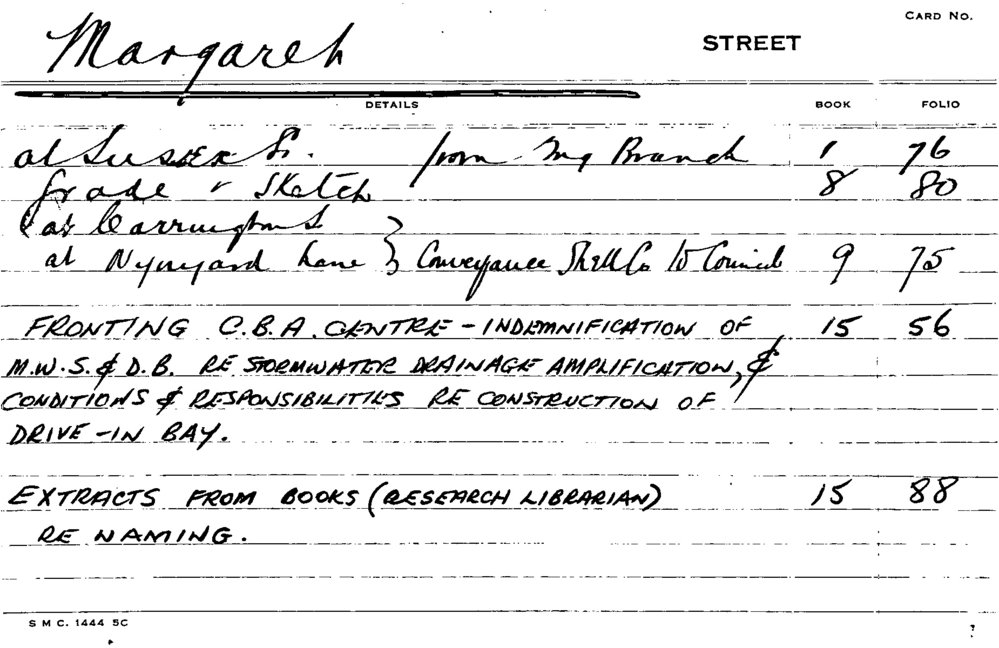 CARD NO.
Margaret STREET
DETAILS BOOK FOLIO
at Sussex St. from Branch 1 76
Grade & Sketch 8 80
(at Carrington St
at Wynyard Lane } Conveyance Shell Co to Council 9 75
FRONTING C.B.A. CENTRE - INDEMNIFICATION OF 15 56
M.W.S. & D.B. RE STORMWATER DRAINAGE AMPLIFICATION, &
CONDITIONS & RESPONSIBILITIES RE CONSTRUCTION OF
DRIVE-IN BAY.
EXTRACTS FROM BOOKS (RESEARCH LIBRARIAN) 15 88
RE NAMING.
S M C. 1444 5C